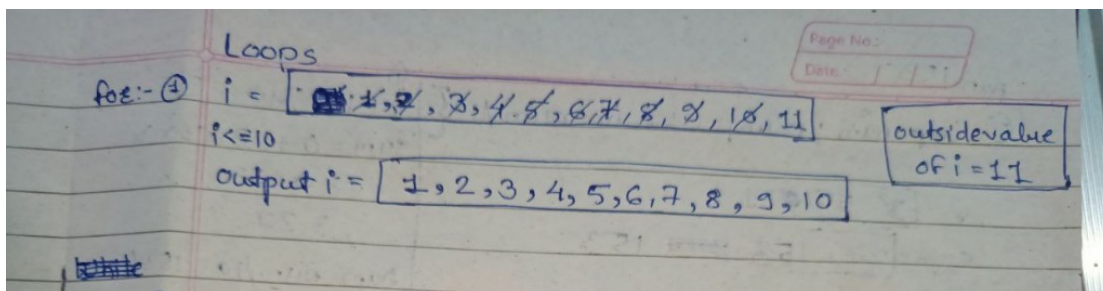 Page No.:
Date
Loops
for:- ① i = 1, 2, 3, 4, 5, 6, 7, 8, 9, 10, 11
i<=10
outsidevalue
of i = 11
output i = 1, 2, 3, 4, 5, 6, 7, 8, 9, 10